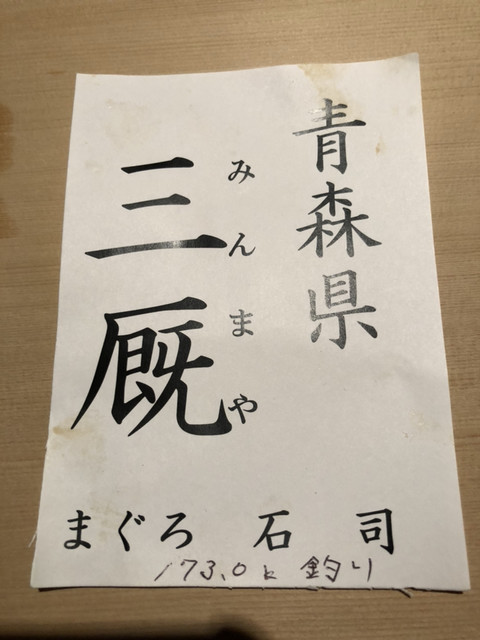 青森県
三厩
みんまや
まぐろ 石司
173.0k 釣り